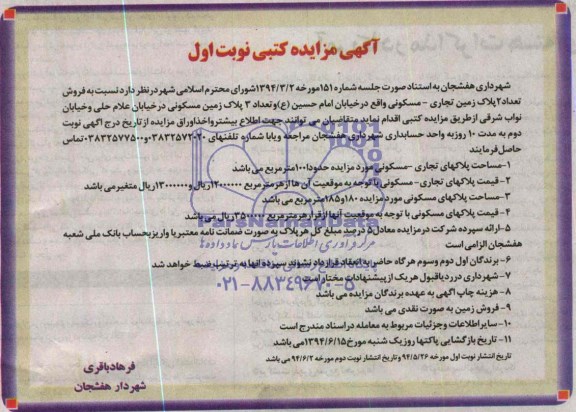 آگهی مزایده کتبی نوبت اول
شهرداری هفشجان به استناد صورت جلسه شماره ۱۵۱مورخه ۱۳۹۴/۳/۲شورای محترم اسلامی شهر در نظر دارد نسبت به فروش
تعداد ۲پلاک زمین تجاری - مسکونی واقع در خیابان امام حسین (ع) و تعداد ۳ پلاک زمین مسکونی در خیابان علام حلی و خیابان
نواب شرقی از طریق مزایده کتبی اقدام نماید متقاضیان می توانند جهت اطلاع بیشتر و اخذ اوراق مزایده از تاریخ درج آگهی نوبت
دوم به مدت ۱۰ روز به واحد حسابداری شهرداری هفشجان مراجعه و یا با شماره تلفنهای ۰۳۸۳۲۵۷۲۰۲۰و۰۳۸۳۲۵۷۷۵۰۰تماس
حاصل فرمایند
۱-مساحت پلاکهای تجاری -مسکونی مورد مزایده حدودا۱۰۰متر مربع می باشد
۲- قیمت پلاکهای تجاری- مسکونی با توجه به موقعیت آن ها از هر متر مربع ریال و ریال متغیر می باشد
۳-مساحت پلاکهای مسکونی مورد مزایده ۱۸۰و۱۸۵متر مربع می باشد
۴- قیمت پلاکهای مسکونی با توجه به موقعیت آنها از قرار هر متر مربع ریال می باشد
۵-ارائه سپرده شرکت در مزایده معادل ۵ درصد مبلغ کل هر پلاک به صورت ضمانت نامه معتبر یا واریز بحساب بانک ملی شعبه
هفشجان الزامی است
۶- برندگان اول دوم وسوم هر گاه حاضر به انعقاد قرارداد نشوند سپرده آنها به ترتیب ضبط خواهد شد
۷-شهرداری در رد یا قبول هر یک از پیشنهادات مختار است
۸- هزینه چاپ آگهی به عهده برندگان مزایده می باشد
۹- فروش زمین به صورت نقدی می باشد
۱۰-سایر اطلاعات و جزئیات مربوط به معامله در اسناد مندرج است
۱۱- تاریخ بازگشایی پاکتها روز یک شنبه مورخ۱۳۹۴/۶/۱۵می باشد
تاریخ انتشار نوبت اول مورخه ۹۴/۵/۲۶ و تاریخ انتشار نوبت دوم مورخه ۹۴/۶/۲ می باشد
فرهاد باقری
شهردار هفشجان
ParsNamadData
مرکز فرآوری اطلاعات پارس نماد داده ها
۰۲۱-۸۸۳۴۹۶۷۰-۵